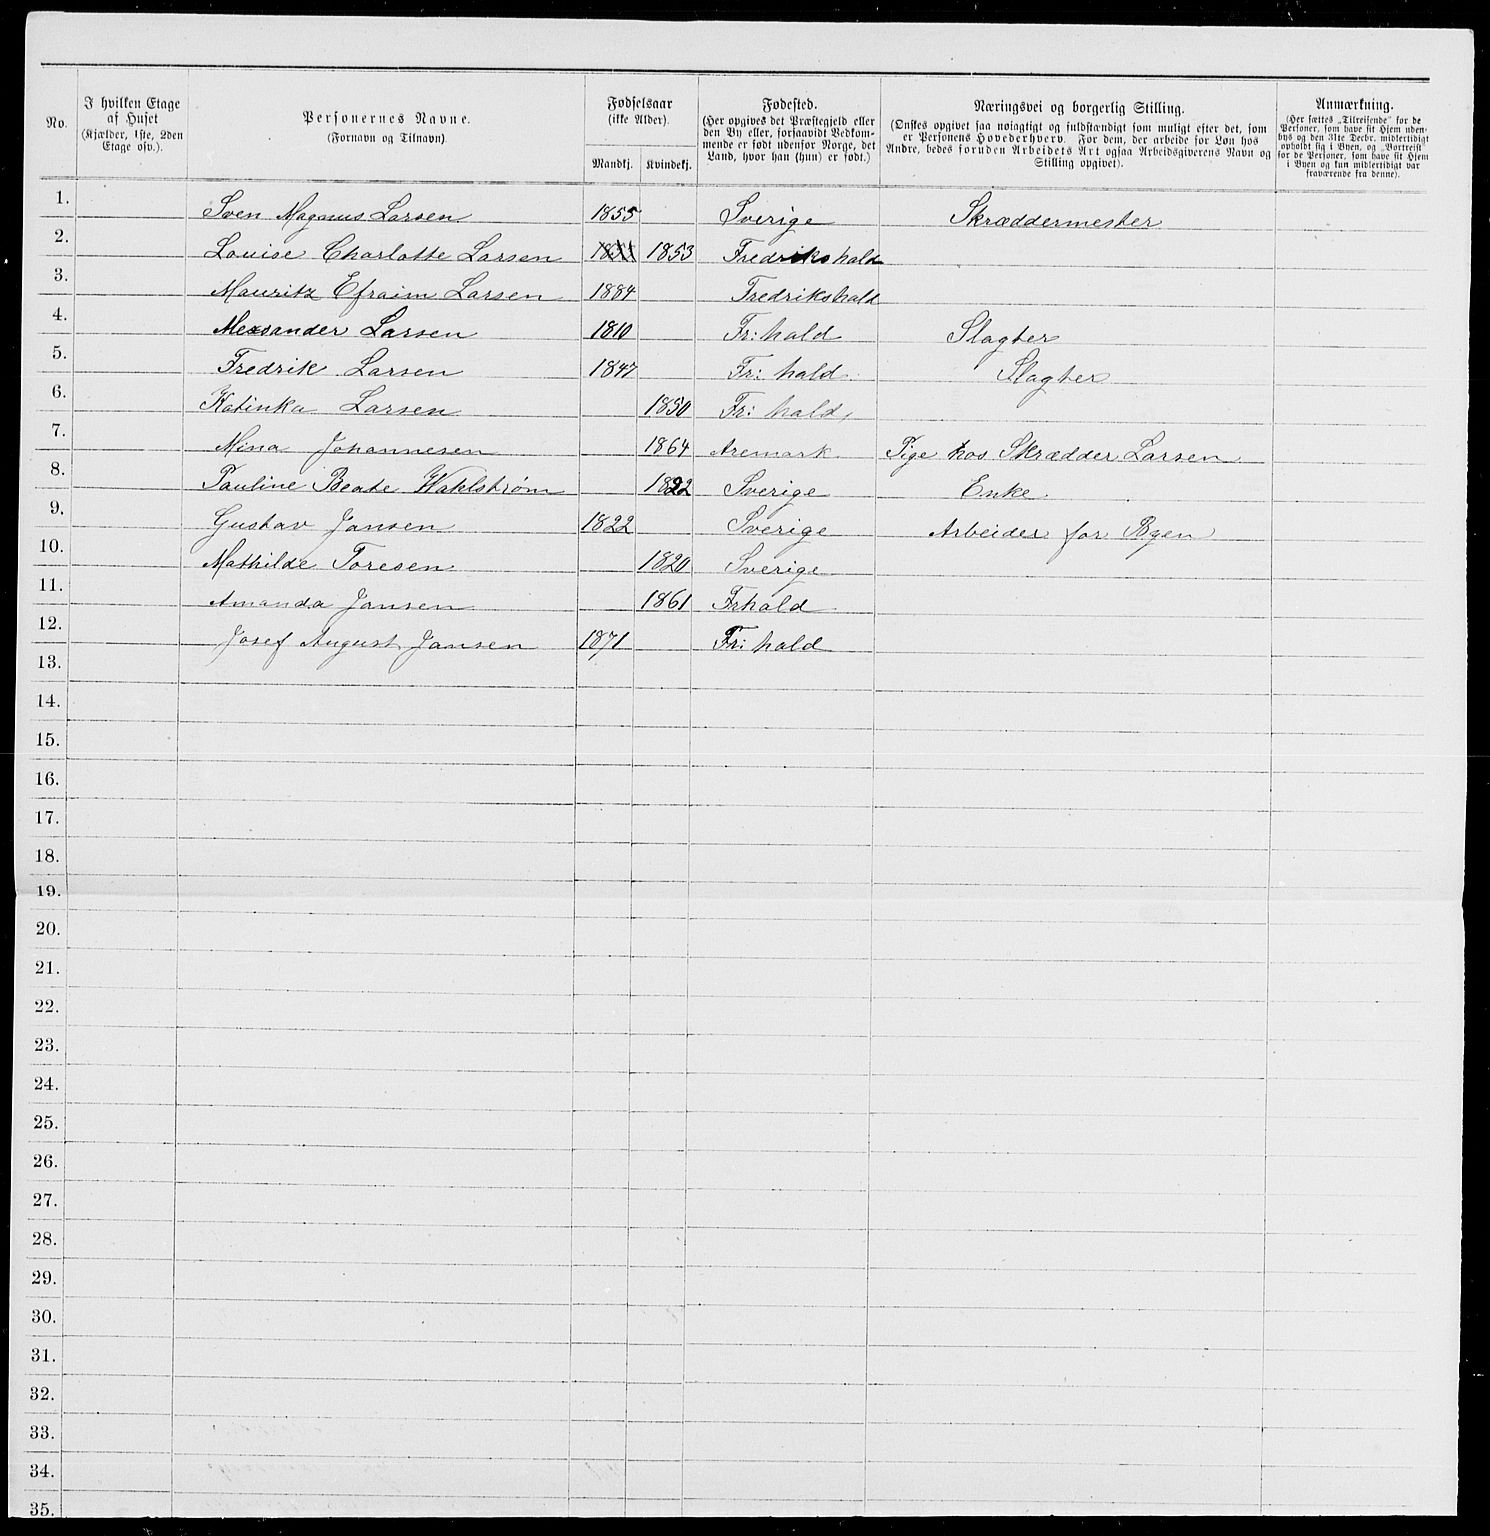 No. I hvilken Etage af Huset (Kjælder, 1ste, 2den Etage osv.). Personernes Navne. (Fornavn og Tilnavn). Fødselsaar (ikke Alder). Mandkj. Kvindekj. Fødested. (Her opgives det Præstegjeld eller den By eller, forsaavidt Vedkommende er født udenfor Norge, det Land, hvor han (hun) er født.) Næringsvei og borgerlig Stilling. (Ønskes opgivet saa nøiagtigt og fuldstændigt som muligt efter det, som er Personens Hovederhverv. For dem, der arbeide for Løn hos Andre, bedes foruden Arbeidets Art ogsaa Arbeidsgiverens Navn og Stilling opgivet). Anmærkning. (Her sættes „Tilreisende" for de Personer, som have sit Hjem udenbys og den 31te Decbr. midlertidigt opholdt sig i Byen, og „Bortreist" for de Personer, som have sit Hjem i Byen og kun midlertidigt var fraværende fra denne).
1. Sven Magnus Larsen 1855 Sverige Skræddermester
2. Louise Charlotte Larsen 1853 Fredrikshald
3. Mauritz Efraim Larsen 1884 Fredrikshald
4. Larsen 1810 Fr: hald Slagter
5. Fredrik Larsen 1847 Fr: hald Slagter
6. Katinka Larsen 1850 Fr: hald
7. Mina Johannesen 1864 Aremark. Pige hos Skrædder Larsen
8. Pauline Beate Wahlstrøm 1822 Sverige Enke
9. Gustav Jansen 1822 Sverige Arbeider for Byen
10. Mathilde Toresen 1820 Sverige
11. Amanda Jansen 1861 Frhald
12. Josef August Jansen 1871 Fr: hald
13.
14.
15.
16.
17.
18.
19.
20.
21.
22.
23.
24.
25.
26.
27.
28.
29.
30.
31.
32.
33.
34.
35.